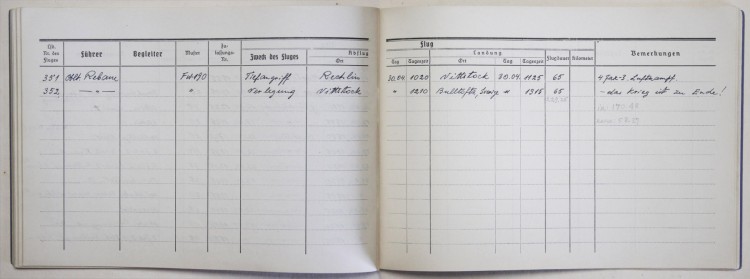 Flug
Lfd. Nr. des Fluges Führer Begleiter Muster Zulassungs-Nr. Zweck des Fluges Abflug Landung Flugdauer Kilometer Bemerkungen
Ort Tag Tageszeit Ort Tag Tageszeit
351. Oblt. FW 190 Tiefangriff Rechlin 30.04 1020 Wittstock 30.04. 1125 65 Luftkampf
352. — " — " Verlegung Wittstock " 1210 " 1315 65 - das Krieg ist zu Ende!